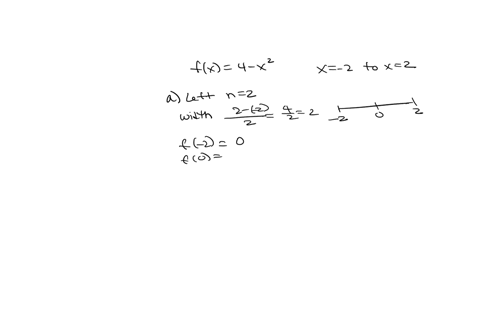 f(x) = 4-x² x=-2 to x=2
a) Left n=2
width (2-(-2))/2 = 4/2 = 2 -2 0 2
f(-2) = 0
f(0) =